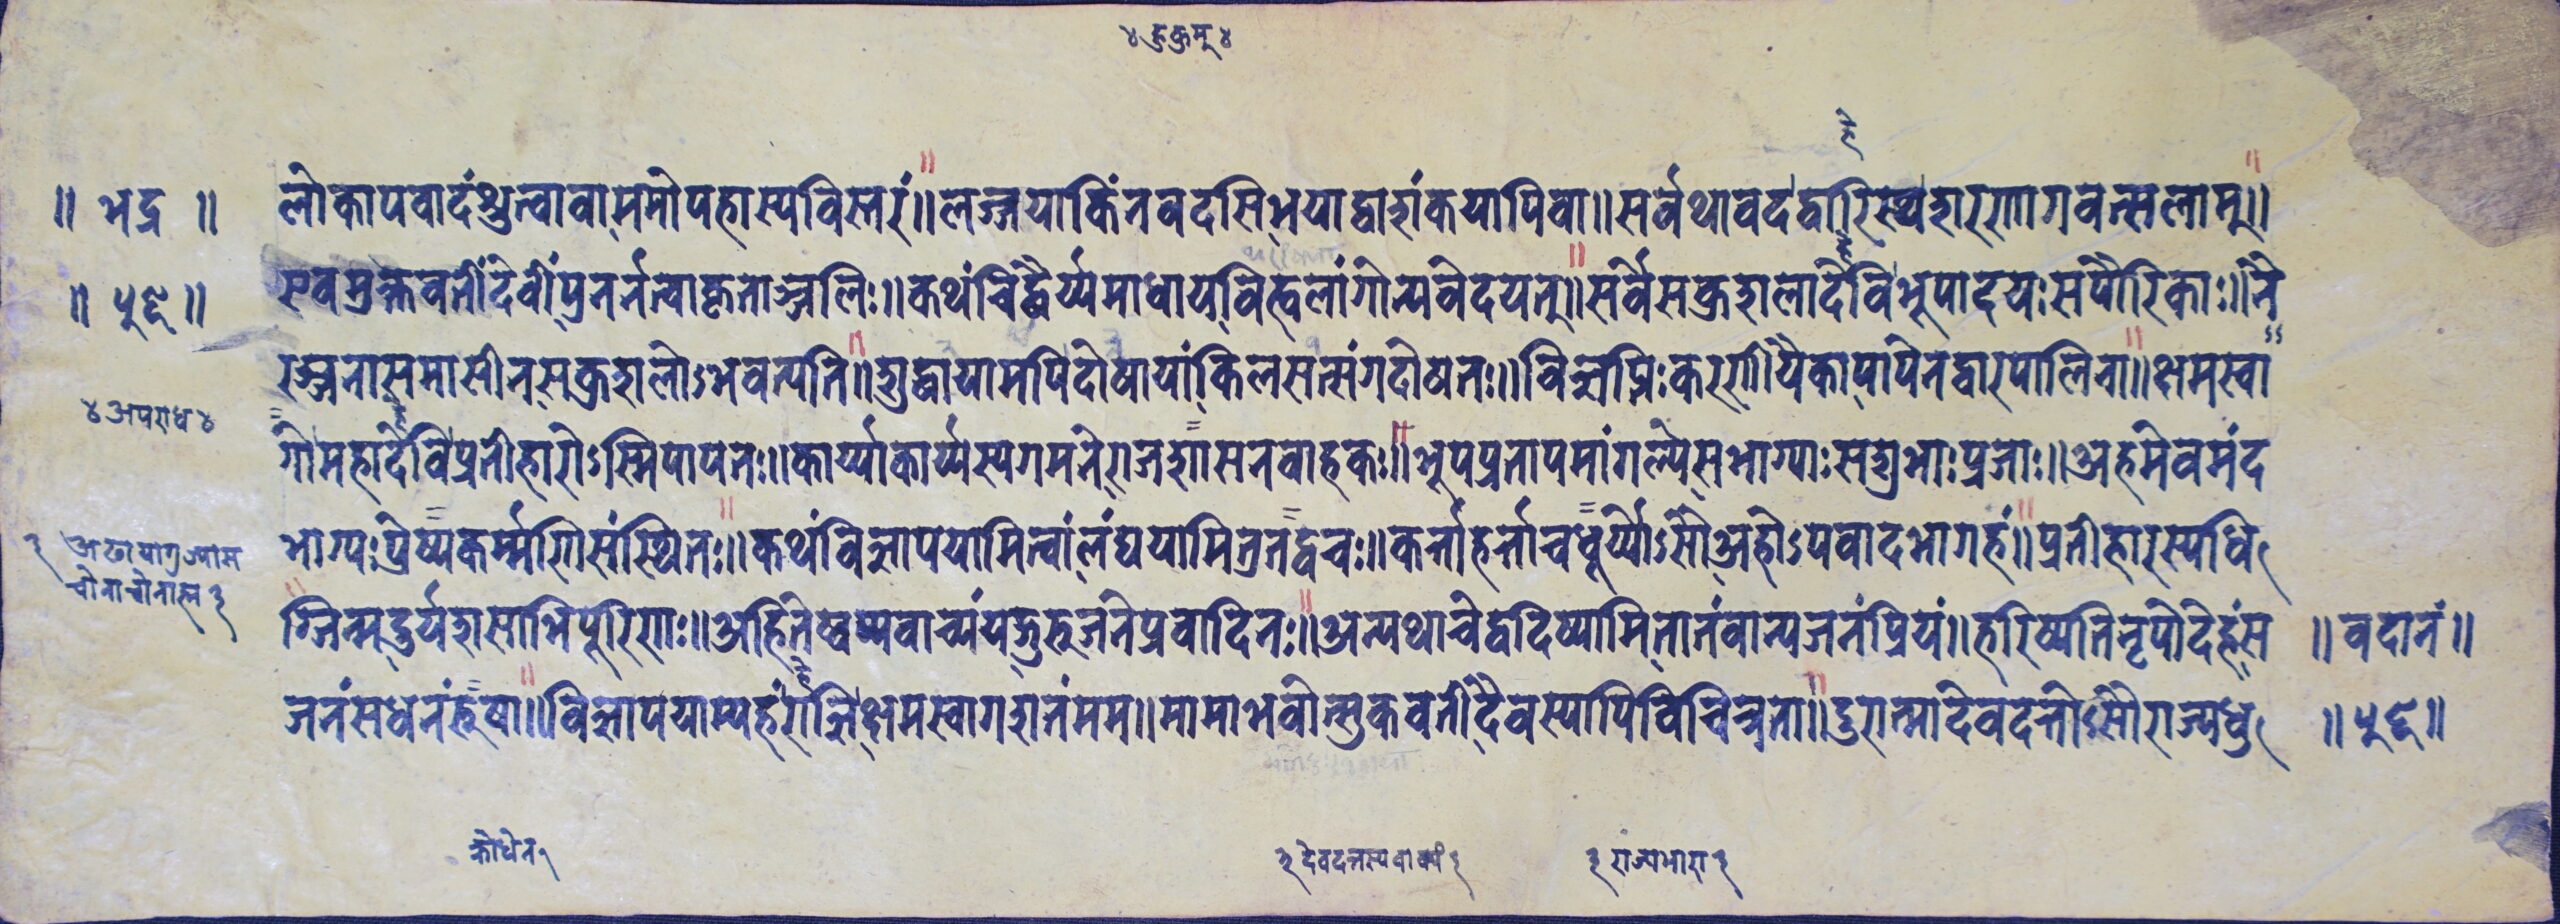 ४ हुकुम् ४
॥ भद्र ॥ लोकापवादं श्रुत्वा वा ममोपहास्यविस्तरं॥ लज्जया किं न वदसि भयाद्वा शंकयापि वा॥ सर्वथा वद द्वारिस्थे शरणागवत्सलाम्॥
॥ ५८ ॥ एवमुक्तवतीं देवीं पुनर्नत्वा कृताञ्जलिः॥ कथंचिद्धैर्य्यमाधाय विह्वलांगो न्यवेदयत्॥ सर्वे सकुशला देवि भूपादयः सपौरिकाः॥ नि
रञ्जना समासीत् सकुशलोऽभवत्पति॥ शुद्धायामपि दोषायां किल सत्संगदोषतः॥ विज्ञप्तिः करणीयैका पापेन द्वारपालिना॥ क्षमस्वा
४ अपराध ४
गो महादेवि प्रतीहारोऽस्मि पापतः॥ कार्य्याकार्य्यस्य गमने राजशासनवाहकः॥ भूपप्रतापमांगल्ये सभाग्याः सशुभाः प्रजाः॥ अहमेव मंद
भाग्यः प्रेष्यकर्म्मणि संस्थितः॥ कथं विज्ञापयामि त्वां लंघयामि न तद्वचः॥ कर्त्ता हर्त्ता च धूर्य्योऽसौ अहोऽपवादभागहं॥ प्रतीहारस्य धि
ग्जन्म दुर्यशसाभिपूरिणः॥ अहितेष्वप्यवाच्यं यद्गुरुजने प्रवादिनः॥ अन्यथा चेद्वदिष्यामि नानं वान्यजनं प्रियं॥ हरिष्यति नृपो देहं स ॥ वदानं ॥
जनं सधनं रुषा॥ विज्ञापयाम्यहं राज्ञि क्षमस्वागशतं मम॥ मामाभवोत्सुकवती दैवस्यापि विचित्रता॥ दुरात्मा देवदत्तोऽसौ राज्यधु ॥ ५८ ॥
क्रोधेन १
३ देवदत्तस्य वाक्यं ३
३ राज्यभारा ३